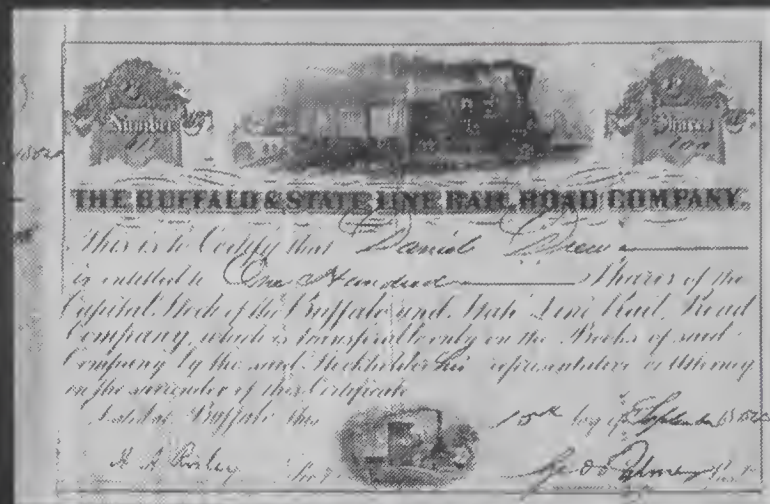 Number
Shares
100
THE BUFFALO & STATE LINE RAIL ROAD COMPANY.
This is to Certify that Daniel Drew
is entitled to One Hundred Shares of the
Capital Stock of the Buffalo and State Line Rail Road
Company, which is transferable only on the Books of said
Company by the said Stockholder his representative or Attorney
on the surrender of this Certificate
Dated at Buffalo this 15th day of September